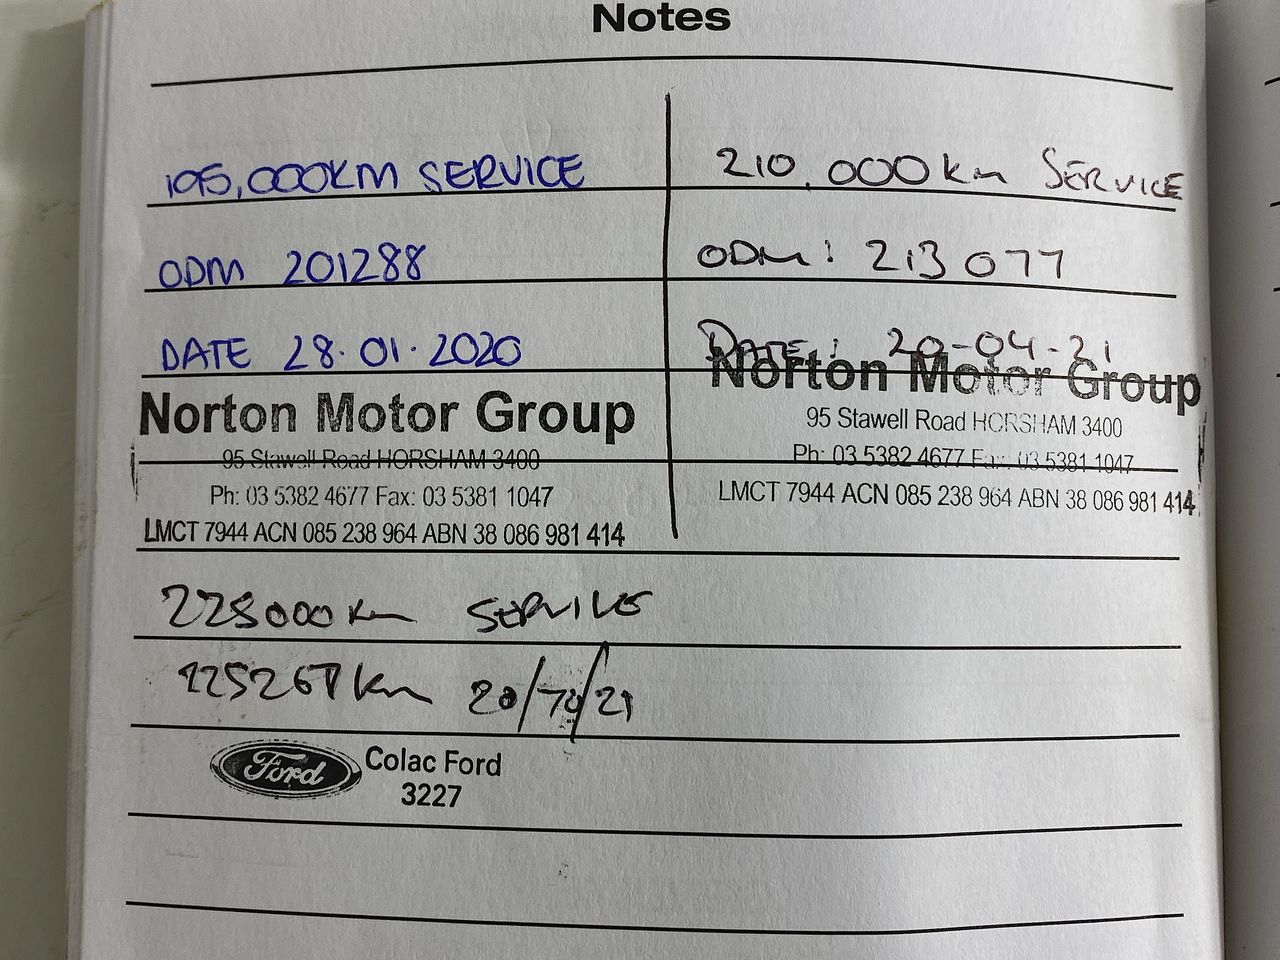 Notes
195,000KM SERVICE
ODM 201288
DATE 28.01.2020
Norton Motor Group
95 Stawell Road HORSHAM 3400
Ph: 03 5382 4677 Fax: 03 5381 1047
LMCT 7944 ACN 085 238 964 ABN 38 086 981 414
210,000km SERVICE
ODM: 213077
DATE: 20-04-21
Norton Motor Group
95 Stawell Road HORSHAM 3400
Ph: 03 5382 4677 Fax: 03 5381 1047
LMCT 7944 ACN 085 238 964 ABN 38 086 981 414
225000km SERVICE
225267km 20/10/21
Ford Colac Ford
3227